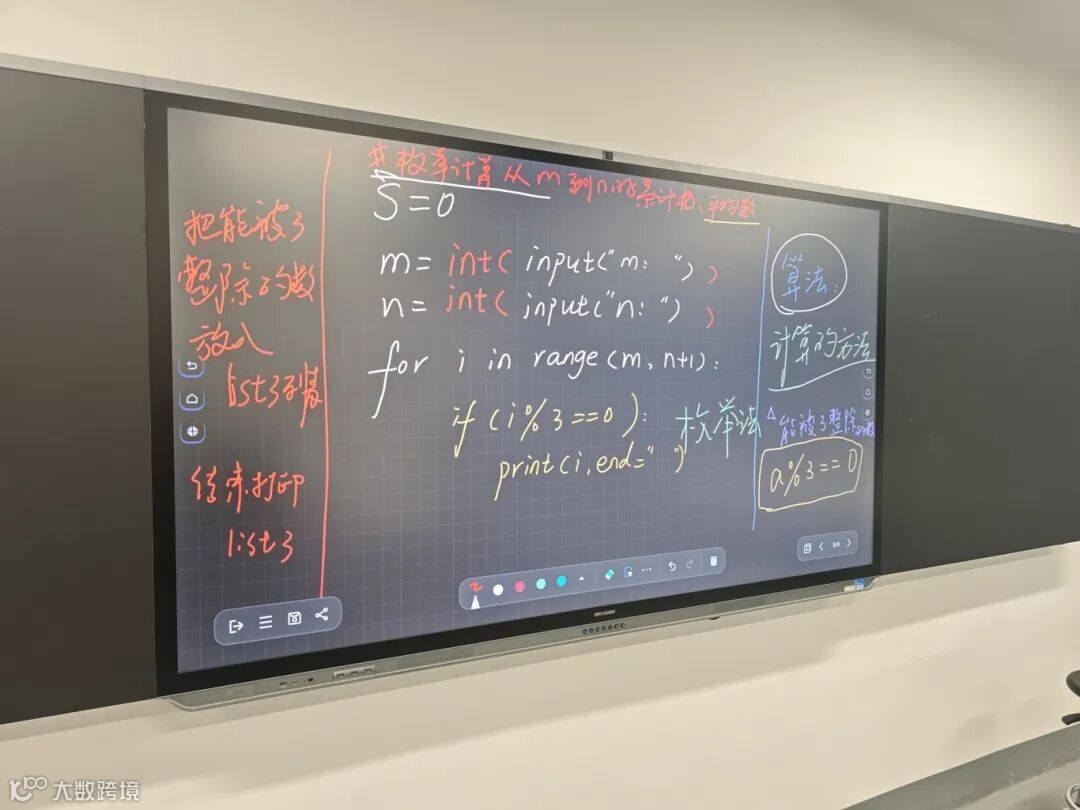 把能被3
整除的数
放入
list3列表
结束打印
list3
#枚举计算从m到n的累计和、平均数
S=0
m= int( input("m: ") )
n= int( input("n: ") )
for i in range(m, n+1):
if (i%3==0):
print(i,end=" ")
枚举法
算法:
计算的方法
能被3整除的数
a%3==0
大数跨境